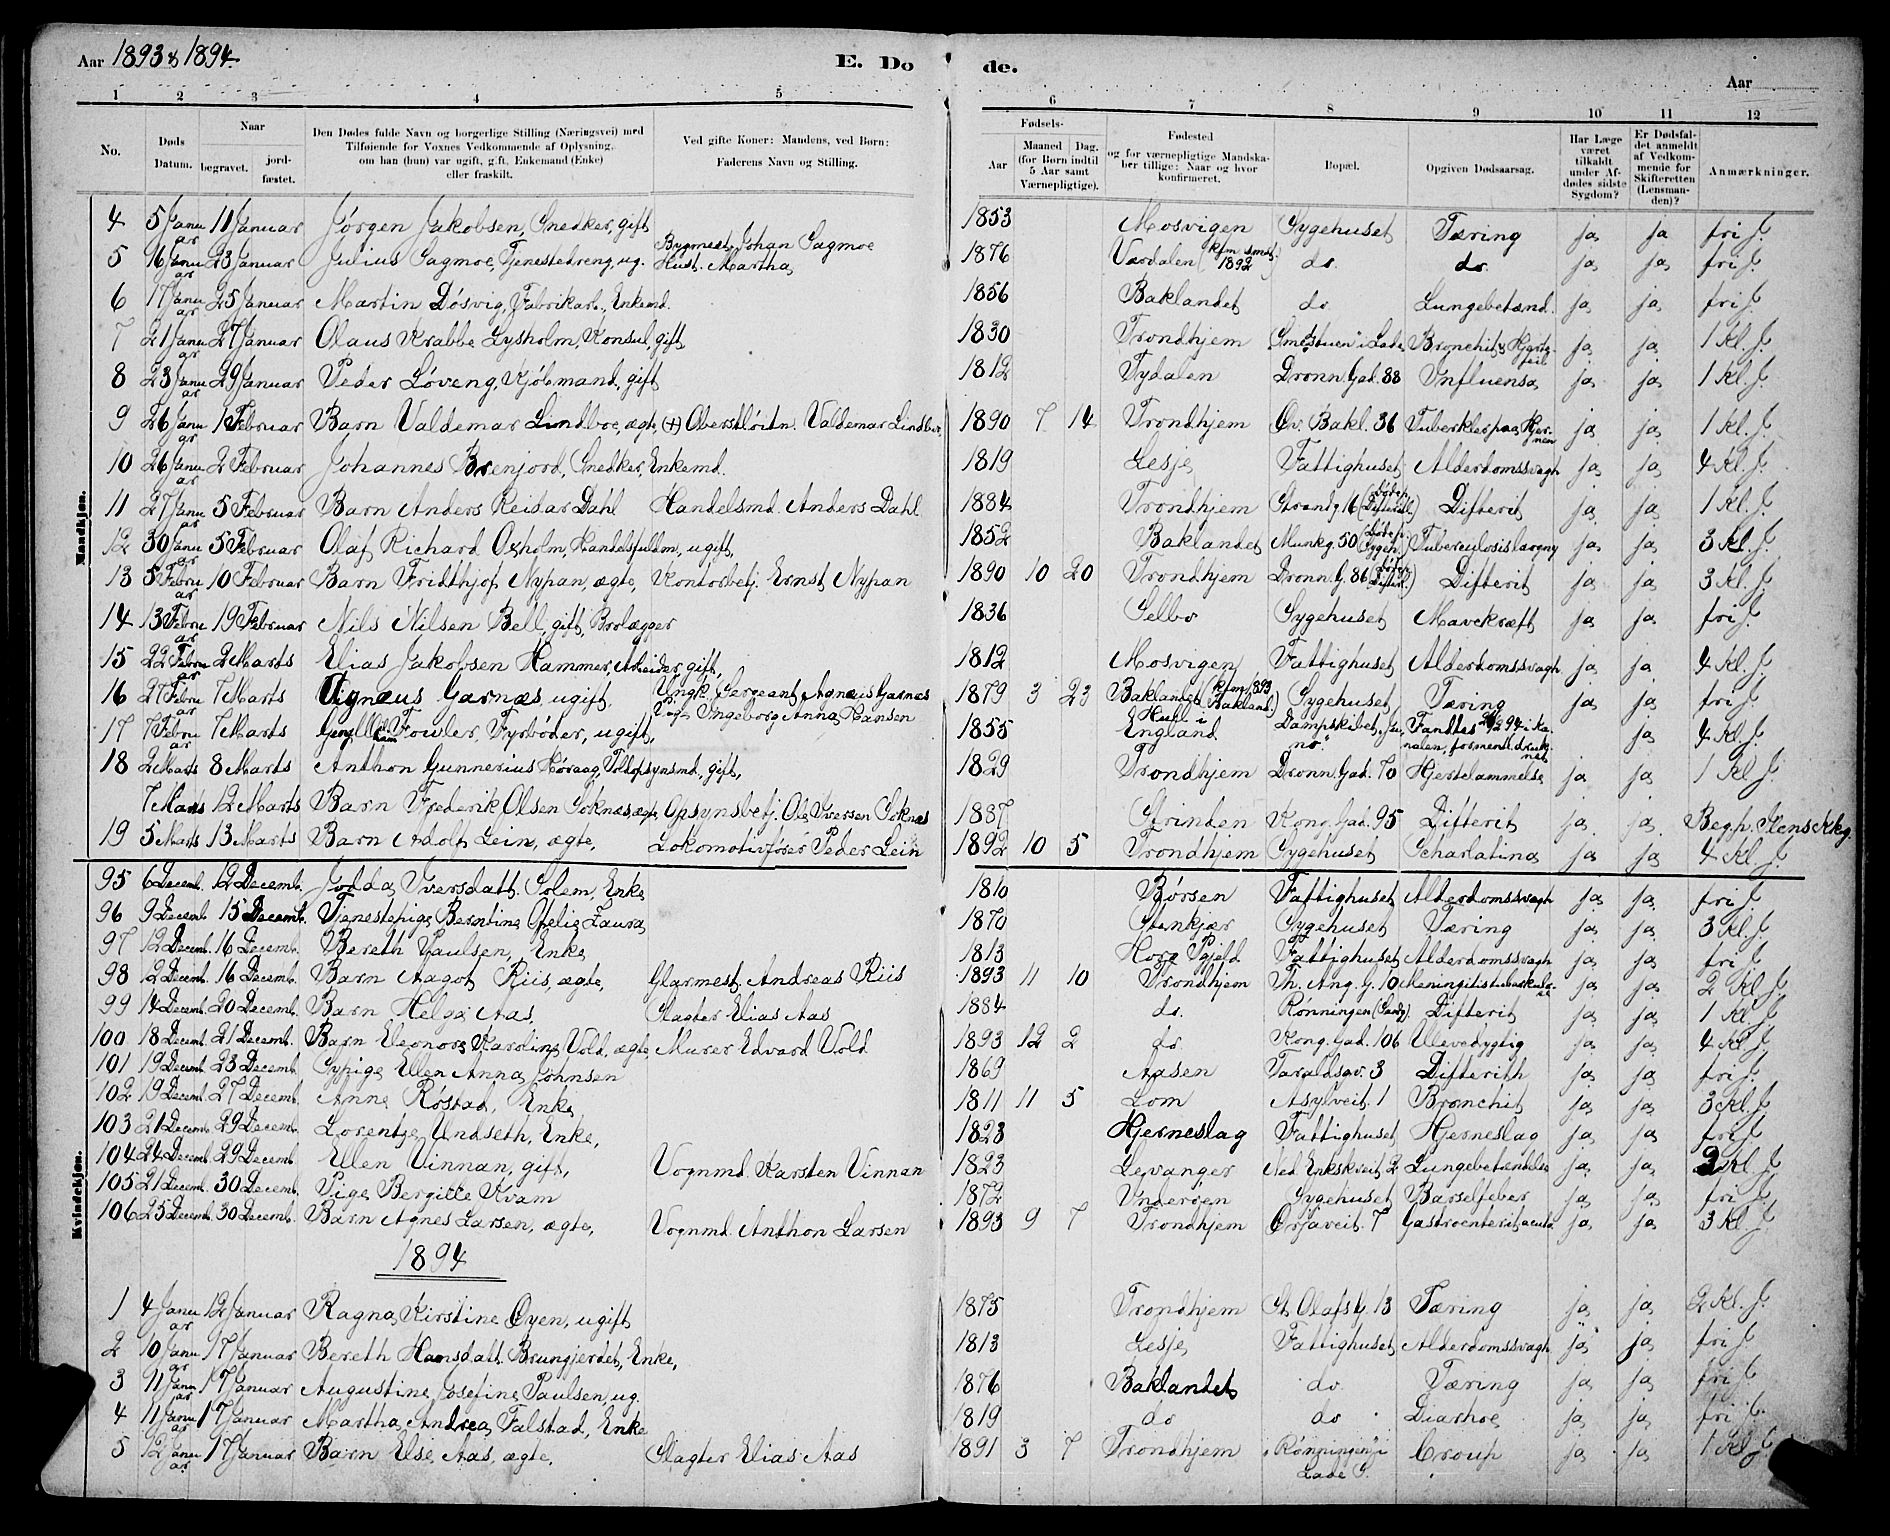 Aar 1893 & 1894.
E. Dø
de.
Aar
1 2 3 4 5 6 7 8 9 10 11 12
No.
Døds Datum.
Naar
begravet.
jordfæstet.
Den Dødes fulde Navn og borgerlige Stilling (Næringsvei) med
Tilføiende for Voxnes Vedkommende af Oplysning,
om han (hun) var ugift, gift, Enkemand (Enke)
eller fraskilt.
Ved gifte Koner: Mandens, ved Børn:
Faderens Navn og Stilling.
Fødsels-
Aar
Maaned Dag.
(for Børn indtil
5 Aar samt
Værnepligtige).
Fødested
og for værnepligtige Mandska-
ber tillige: Naar og hvor
konfirmeret.
Bopæl.
Opgiven Dødsaarsag.
Har Læge
været
tilkaldt
under Af-
dødes sidste
Sygdom?
Er Dødsfal-
det anmeldt
af Vedkom-
mende for
Skifteretten
(Lensman-
den)?
Anmærkninger.
Mandkjøn.
4 5 Januar 11 Januar Jørgen Jakobsen, Snedker, gift 1853 Mosvigen Sygehuset Tæring ja ja fri J.
5 16 Januar 23 Januar Julius Sagmoe, Tjenestedreng, ug. Bygmest. Johan Sagmoe Hust. Martha 1876 Værdalen (kfm smst. 1892) do. do. ja ja fri J.
6 17 Januar 25 Januar Martin Døsvig, Fabrikarb., Enkemd. 1856 Baklandet do Lungebetænd. ja ja fri J.
7 21 Januar 27 Januar Olaus Krabbe Lysholm, Konsul, gift 1830 Trondhjem Smedstuen i Lade Bronchit & Hjertefeil ja ja 1 Kl. J.
8 23 Januar 29 Januar Peder Løveng, Kjøbmand, gift 1812 Tydalen Dronn. Gad. 88 Influensa ja ja 1 Kl. J.
9 26 Januar 1 Februar Barn Valdemar Lindboe, ægte, (+) Oberstløitn. Valdemar Lindboe 1890 7 14 Trondhjem Øv. Bakl. 36 Tuberkler paa Hjernen ja ja 1 Kl. J.
10 26 Januar 2 Februar Johannes Brenjord, Snedker, Enkemd. 1819 Lesje Fattighuset Alderdomssvagh ja ja 4 Kl. J.
11 27 Januar 5 Februar Barn Anders Reidar Dahl Handelsmd. Anders Dahl 1884 Trondhjem Strandg. 16 Difterit ja ja 1 Kl. J.
12 30 Januar 5 Februar Olaf Richard Oxholm, Handelsfuldm, ugift, 1852 Baklandet Munkg. 50 Tuberculosis laryng ja ja 3 Kl. J.
13 5 Februar 10 Februar Barn Fridthjof Nypan, ægte, Kontorbetj. Ernst Nypan 1890 10 20 Trondhjem Dronn. G. 86 Difterit ja ja 3 Kl. J.
14 13 Februar 19 Februar Nils Nilsen Bell, gift, Brolægger 1836 Selbo Sygehuset Mavekræft ja ja fri J.
15 22 Februar 2 Marts Elias Jakobsen Hammer, Arbeider, gift, 1812 Mosvigen Fattighuset Alderdomssvagh ja ja 4 Kl. J.
16 27 Februar 7 Marts Agnæus Garnæs, ugift, Ungk. Sergeant Agnæus Garnæs Pige Ingeborg Anna Hansen 1879 3 23 Baklandet (Kfm 1893 Bakland.) Sygehuset Tæring ja ja fri J.
17 7 Februar 7 Marts William Fowler, Fyrbøder, ugift, 1855 Hull i England Dampskibet Juno. Fandtes 94 i Kanalen, formentl. druknet ja 4 Kl. J.
18 2 Marts 8 Marts Anthon Gunnerius Høraag, Toldopsynsmd, gift, 1829 Trondhjem Dronn. Gad. 70 Hjertelammelse ja ja 1 Kl J.
7 Marts 12 Marts Barn Frederik Olsen Soknæs, ægte, Opsynsbetj. Ole Iversen Soknes 1887 Strinden Kong. Gad. 95 Difterit ja ja. Beg. p. Ilens Kkg.
19 5 Marts 13 Marts Barn Adolf Lein, ægte, Lokomotivfører Peder Lein 1892 10 5 Trondhjem Sygehuset Scharlatina ja ja 4 Kl. J.
Kvindekjøn.
95 6 Decemb. 12 Decemb. Jodda Iversdatt. Solem, Enke 1810 Børsen Fattighuset Alderdomssvagh ja ja. fri J.
96 9 Decemb 15 Decemb. Tjenestepige Berntine Ofelie Laura 1870 Stenkjær Sygehuset Tæring ja ja. 3 Kl. J
97 12 Decemb. 16 Decemb. Bereth Paulsen, Enke 1813 Horg Pgjeld Fattighuset Alderdomssvagh ja ja fri J
98 12 Decemb. 16 Decemb. Barn Aagot Riis, ægte, Glarmest. Andreas Riis 1893 11 10 Trondhjem Th. Ang. G. 10 Meningitis tuberkulose ja ja 2 Kl J.
99 14 Decemb. 20 Decemb. Barn Helga Aas, Slagter Elias Aas 1884 do. Rønningen (Lade) Difterit ja ja 1 Kl J
100 18 Decemb. 21 Decemb. Barn Eleonora Karoline Vold, ægte, Murer Edvard Vold 1893 12 2 do Kong. Gad. 106 Ulevedygtig ja ja 4 Kl J.
101 19 Decemb. 23 Decemb. Sypige Ellen Anna Johnsen 1869 Aasen Taraldsgv. 3 Difterith ja ja fri J.
102 19 Decemb. 27 Decemb. Anne Røstad, Enke, 1811 11 5 Lom Asylveit. 1 Bronchit ja ja 3 Kl. J
103 21 Decemb. 29 Decemb. Lorentze Undseth, Enke, 1823 Hjerneslag Fattighuset Hjerneslag ja ja fri J
104 24 Decemb. 29 Decemb. Ellen Vinnan, gift, Vognmd. Karsten Vinnan 1823 Levanger Ned. Enkskveit. 2 Lungebetændelse ja ja. 3 Kl. J
105 21 Decemb. 30 Decemb. Pige Bergitte Kvam 1872 Ynderøen Sygehuset Barselfeber ja ja fri J
106 25 Decemb. 30 Decemb. Barn Agnes Larsen, ægte, Vognmd. Anthon Larsen 1893 9 7 Trondhjem Ørjaveit. 7 Gastroenterit acuta ja ja 3 Kl. J.
1894
1 4 Januar 12 Januar Ragna Kirstine Øyen, ugift 1875 Trondhjem St. Olafs G. 13 Tæring ja ja 2 Kl. J.
2 10 Januar 17 Januar Bereth Hansdatt. Brungjerdet, Enke, 1813 Lesje Fattighuset Alderdomssvagh ja ja fri J
3 11 Januar 17 Januar Augustine Josefine Paulsen, ug. 1876 Baklandet do. Tæring ja ja fri J
4 11 Januar 17 Januar Martha Andrea Falstad, Enke 1819 do do Diarhoe ja ja fri J.
5 12 Januar 17 Januar Barn Else Aas, ægte, Slagter Elias Aas 1891 3 7 Trondhjem Rønningen i Lade S. Croup ja ja 1 Kl J